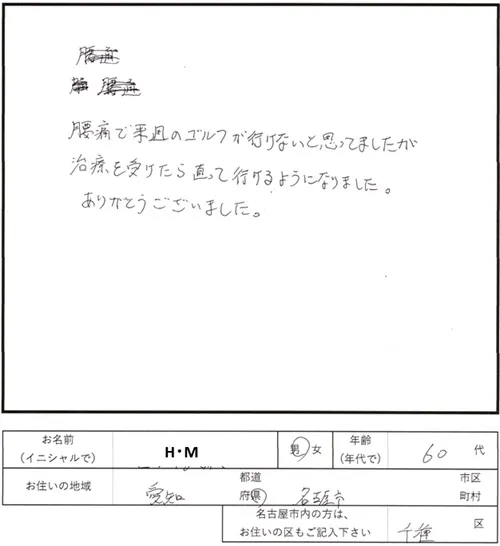 腰痛
腰痛
腰痛で来週のゴルフが行けないと思ってましたが
治療を受けたら直って行けるようになりました。
ありがとうございました。
お名前 (イニシャルで) H・M 男 女 年齢 (年代で) 60 代
お住いの地域 愛知 都道府県 名古屋市 市区町村
名古屋市内の方は、お住いの区もご記入下さい 千種 区